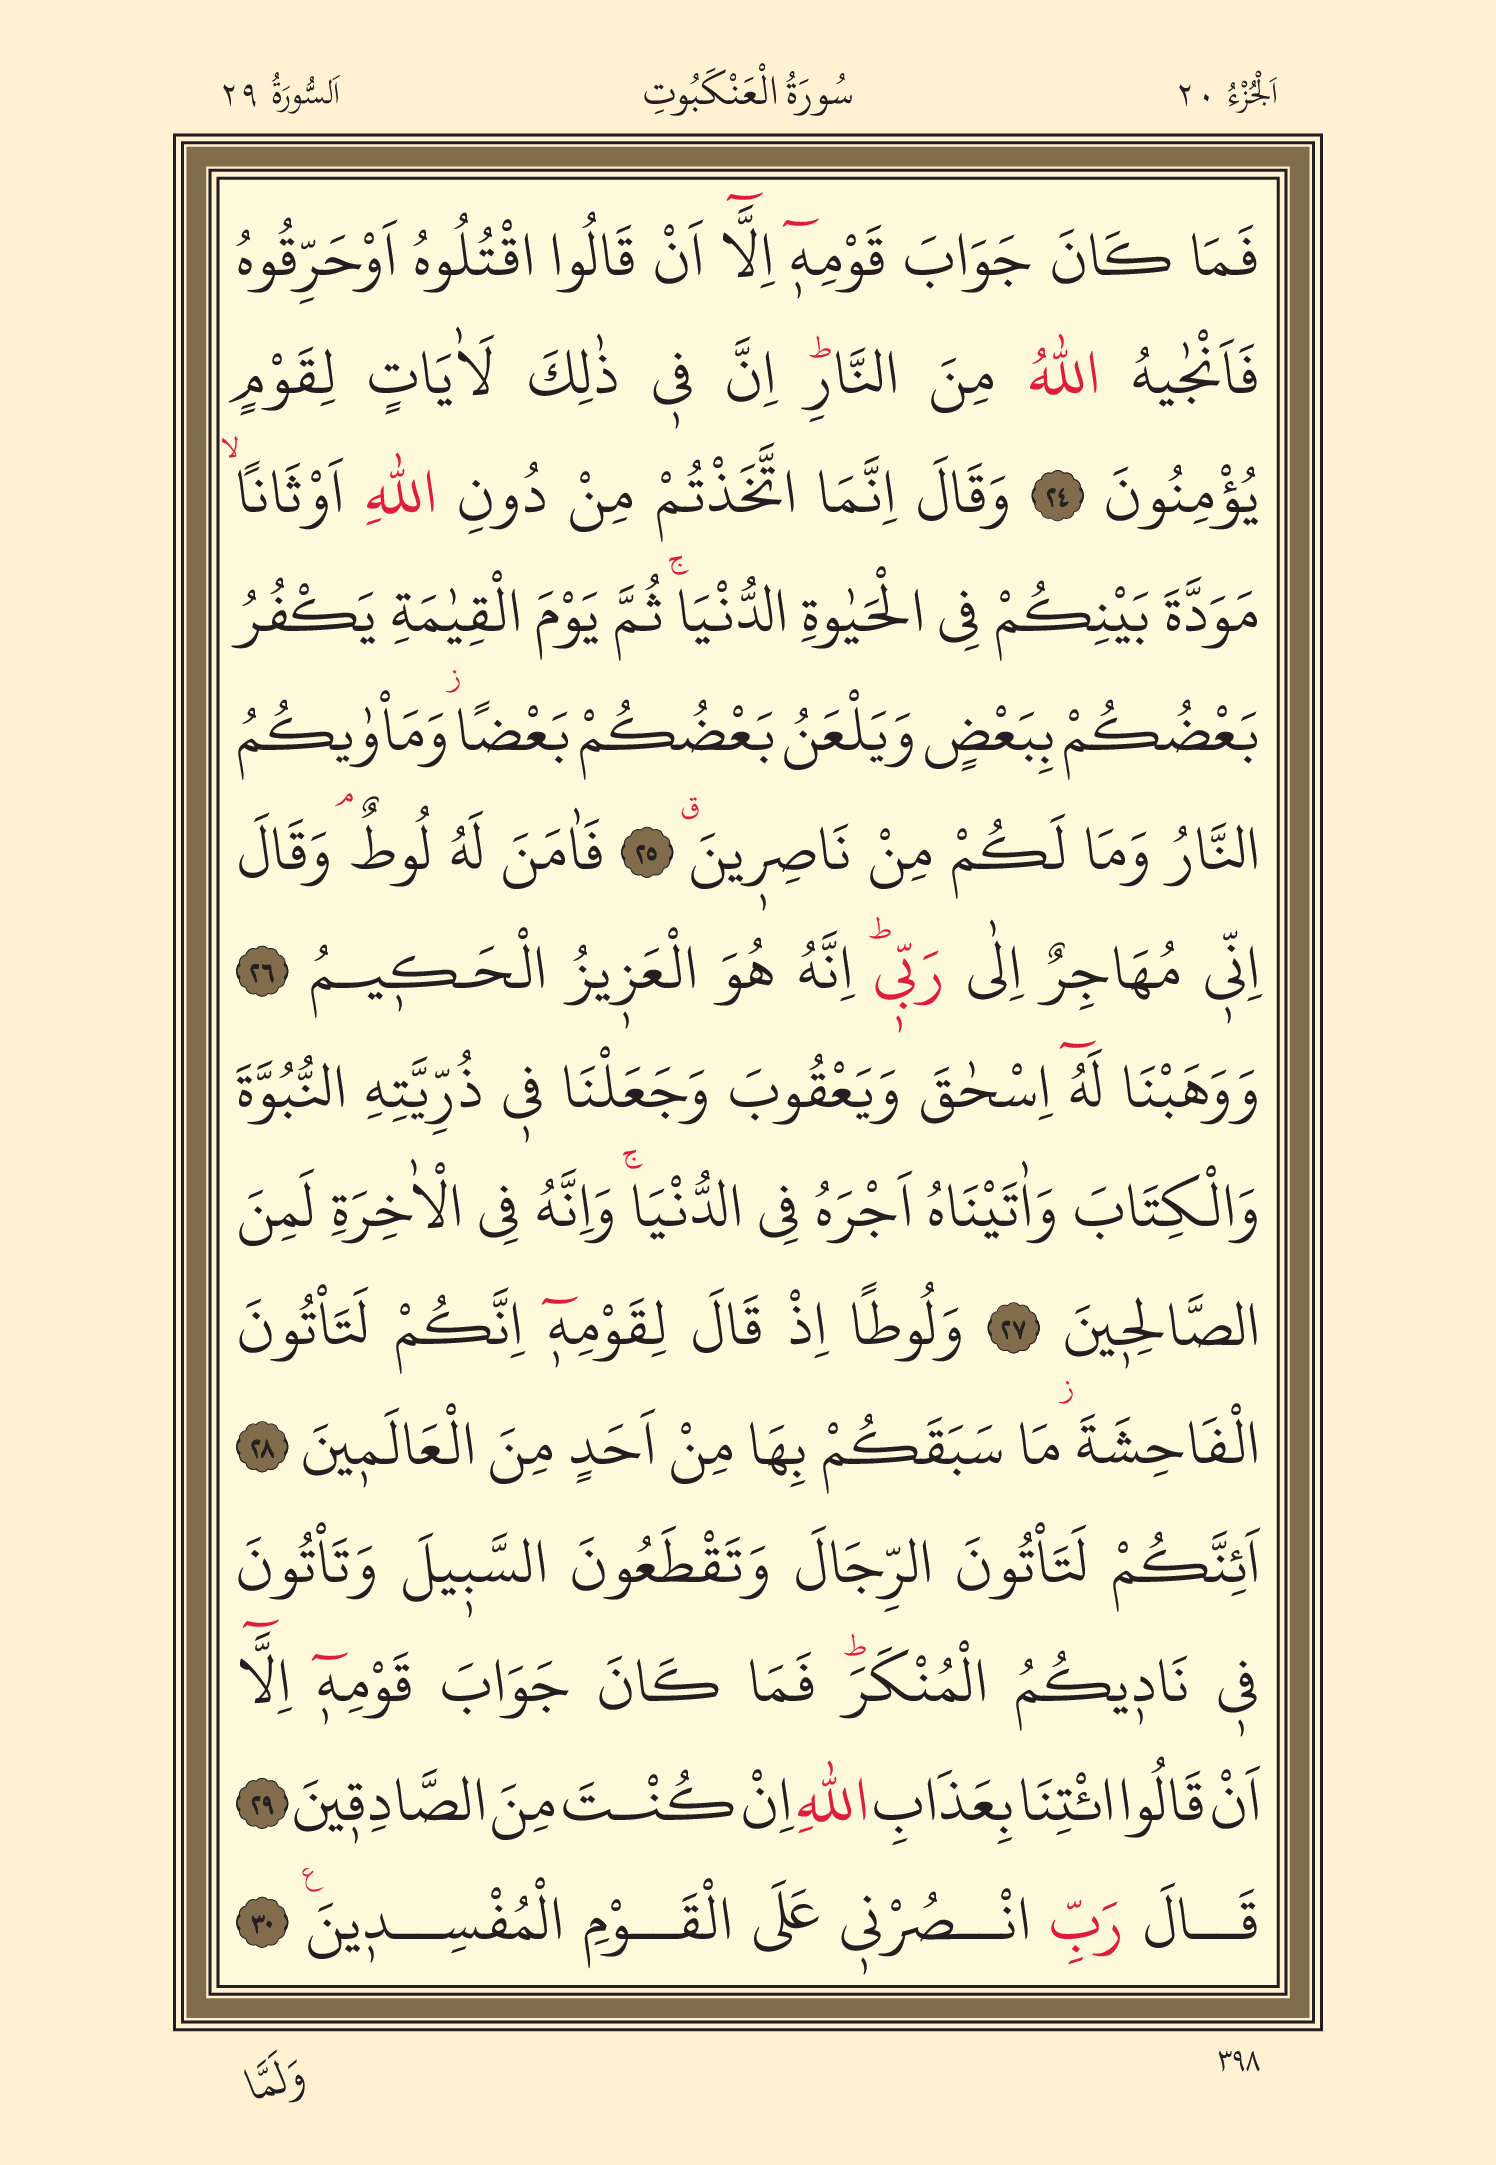 اَلْجُزْءُ ٢٠ سُورَةُ الْعَنْكَبُوتِ اَلسُّورَةُ ٢٩
فَمَا كَانَ جَوَابَ قَوْمِه۪ٓ اِلَّٓا اَنْ قَالُوا اقْتُلُوهُ اَوْ حَرِّقُوهُ
فَاَنْجٰيهُ اللّٰهُ مِنَ النَّارِۜ اِنَّ ف۪ي ذٰلِكَ لَاٰيَاتٍ لِقَوْمٍ
يُؤْمِنُونَ ﴿٢٤﴾ وَقَالَ اِنَّمَا اتَّخَذْتُمْ مِنْ دُونِ اللّٰهِ اَوْثَانًاۙ
مَوَدَّةَ بَيْنِكُمْ فِي الْحَيٰوةِ الدُّنْيَاۚ ثُمَّ يَوْمَ الْقِيٰمَةِ يَكْفُرُ
بَعْضُكُمْ بِبَعْضٍ وَيَلْعَنُ بَعْضُكُمْ بَعْضًاۘ وَمَاْوٰيكُمُ
النَّارُ وَمَا لَكُمْ مِنْ نَاصِر۪ينَۗ ﴿٢٥﴾ فَاٰمَنَ لَهُ لُوطٌۢ وَقَالَ
اِنّ۪ي مُهَاجِرٌ اِلٰى رَبّ۪يۜ اِنَّهُ هُوَ الْعَز۪يزُ الْحَك۪يمُ ﴿٢٦﴾
وَوَهَبْنَا لَهُٓ اِسْحٰقَ وَيَعْقُوبَ وَجَعَلْنَا ف۪ي ذُرِّيَّتِهِ النُّبُوَّةَ
وَالْكِتَابَ وَاٰتَيْنَاهُ اَجْرَهُ فِي الدُّنْيَاۚ وَاِنَّهُ فِي الْاٰخِرَةِ لَمِنَ
الصَّالِح۪ينَ ﴿٢٧﴾ وَلُوطًا اِذْ قَالَ لِقَوْمِه۪ٓ اِنَّكُمْ لَتَاْتُونَ
الْفَاحِشَةَۘ مَا سَبَقَكُمْ بِهَا مِنْ اَحَدٍ مِنَ الْعَالَم۪ينَ ﴿٢٨﴾
اَئِنَّكُمْ لَتَاْتُونَ الرِّجَالَ وَتَقْطَعُونَ السَّب۪يلَ وَتَاْتُونَ
ف۪ي نَاد۪يكُمُ الْمُنْكَرَۜ فَمَا كَانَ جَوَابَ قَوْمِه۪ٓ اِلَّٓا
اَنْ قَالُوا ائْتِنَا بِعَذَابِ اللّٰهِ اِنْ كُنْتَ مِنَ الصَّادِق۪ينَ ﴿٢٩﴾
قَالَ رَبِّ انْصُرْن۪ي عَلَى الْقَوْمِ الْمُفْسِد۪ينَ۟ ﴿٣٠﴾
٣٩٨ وَلَمَّا